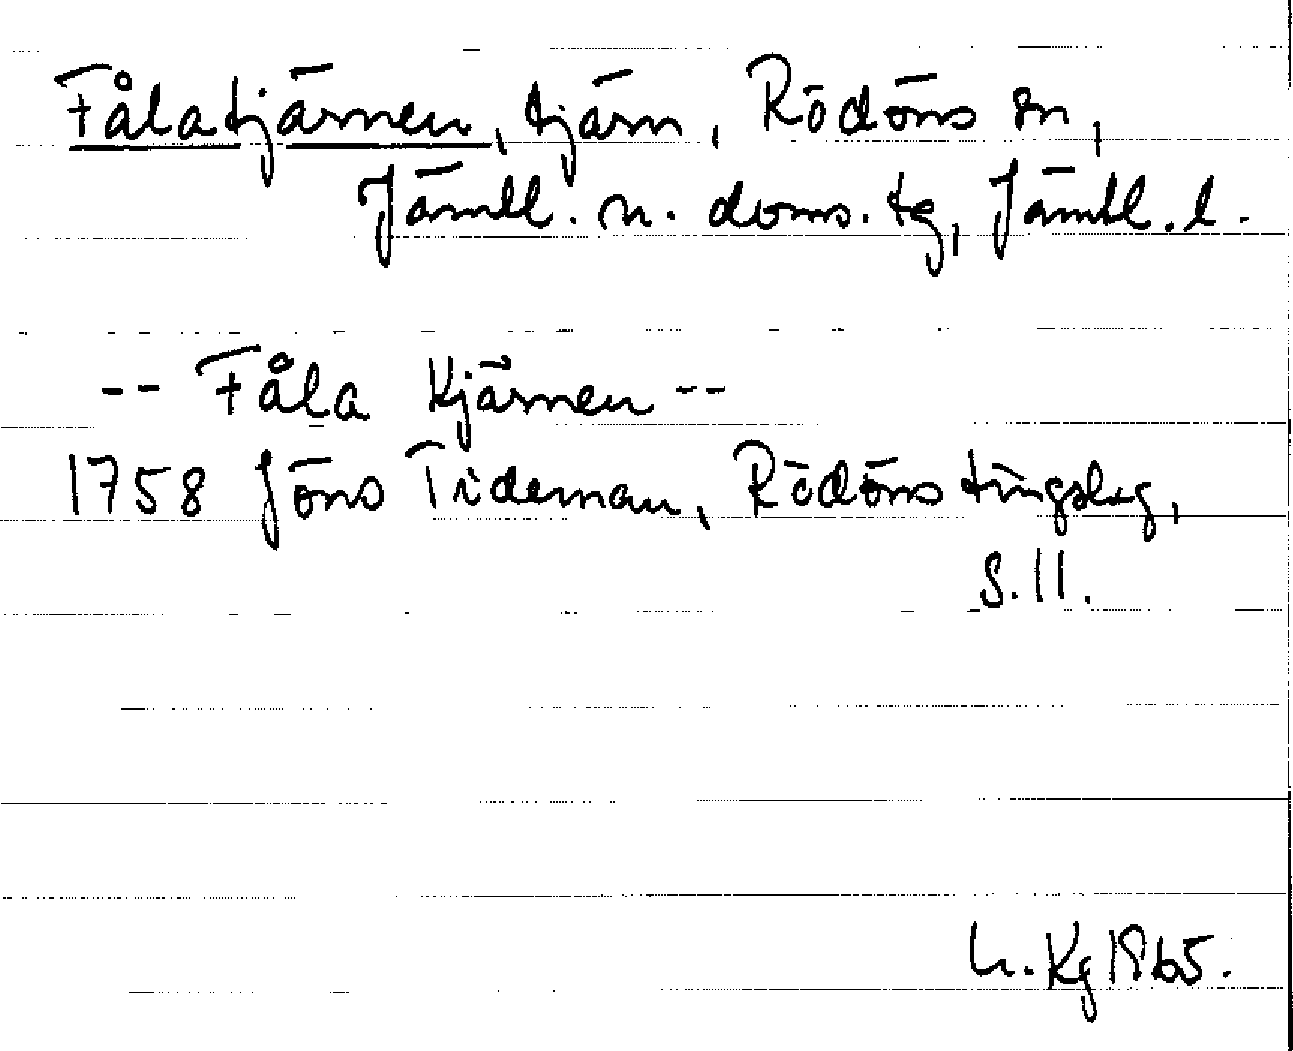 Fålatjärnen, tjärn, Rödöns sn,
Jämtl. n. doms. tg, Jämtl. l.
-- Fåla Kjärnen --
1758 Jöns Tideman, Rödöns tingslag,
s. 11.
L. Kg 1965.